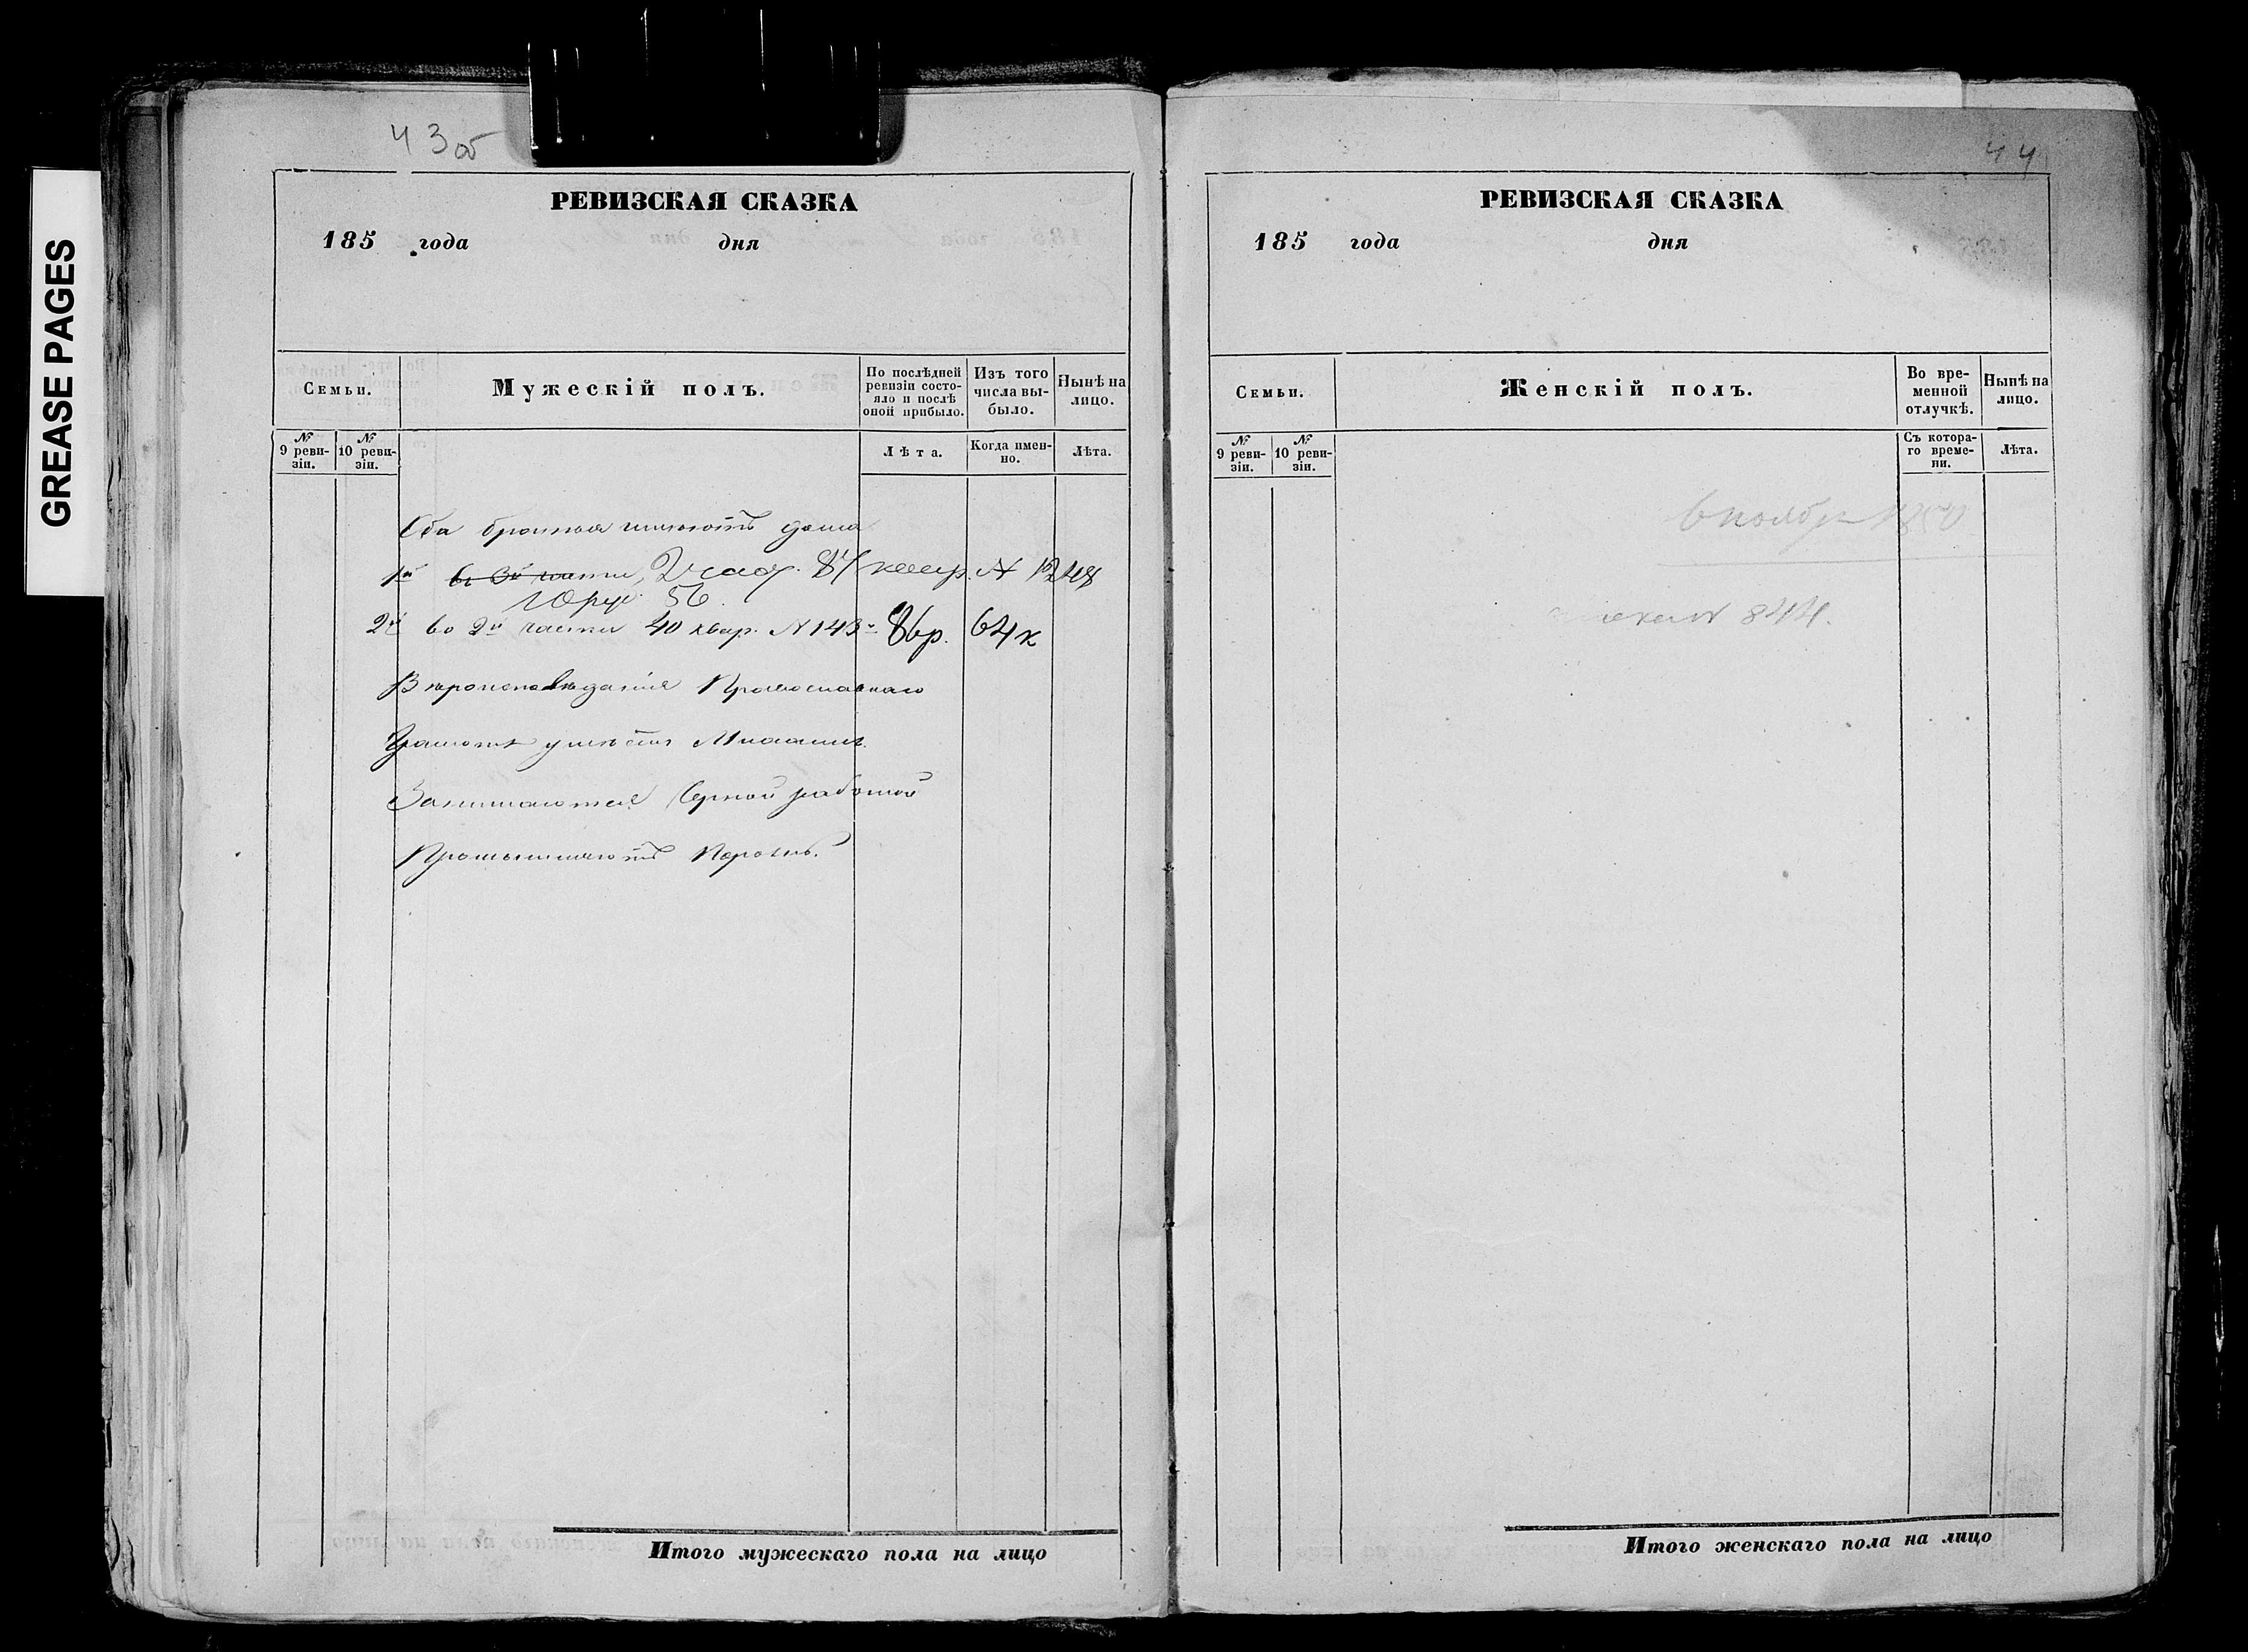 GREASE PAGES
43 об
РЕВИЗСКАЯ СКАЗКА
185 года дня
Семьи.
Мужескій полъ.
По послѣдней ревизіи состояло и послѣ оной прибыло.
Изъ того числа выбыло.
Нынѣ на лицо.
№ 9 ревизіи.
№ 10 ревизіи.
Лѣта.
Когда именно.
Лѣта.
Оба братья имѣютъ дома
1й въ 3й части, 2 част. 87 квар. N 1248
56.
2й во 2й части 40 квар. N 143 86р. 64к
Вѣроисповѣданія Православнаго
Грамотѣ умѣетъ
Занимаются Черной работой
Промышляютъ
Итого мужескаго пола на лицо
44
РЕВИЗСКАЯ СКАЗКА
185 года дня
Семьи.
Женскій полъ.
Во временной отлучкѣ.
Нынѣ на лицо.
№ 9 ревизіи.
№ 10 ревизіи.
Съ котораго времени.
Лѣта.
6 ноября 1850
N 844.
Итого женскаго пола на лицо